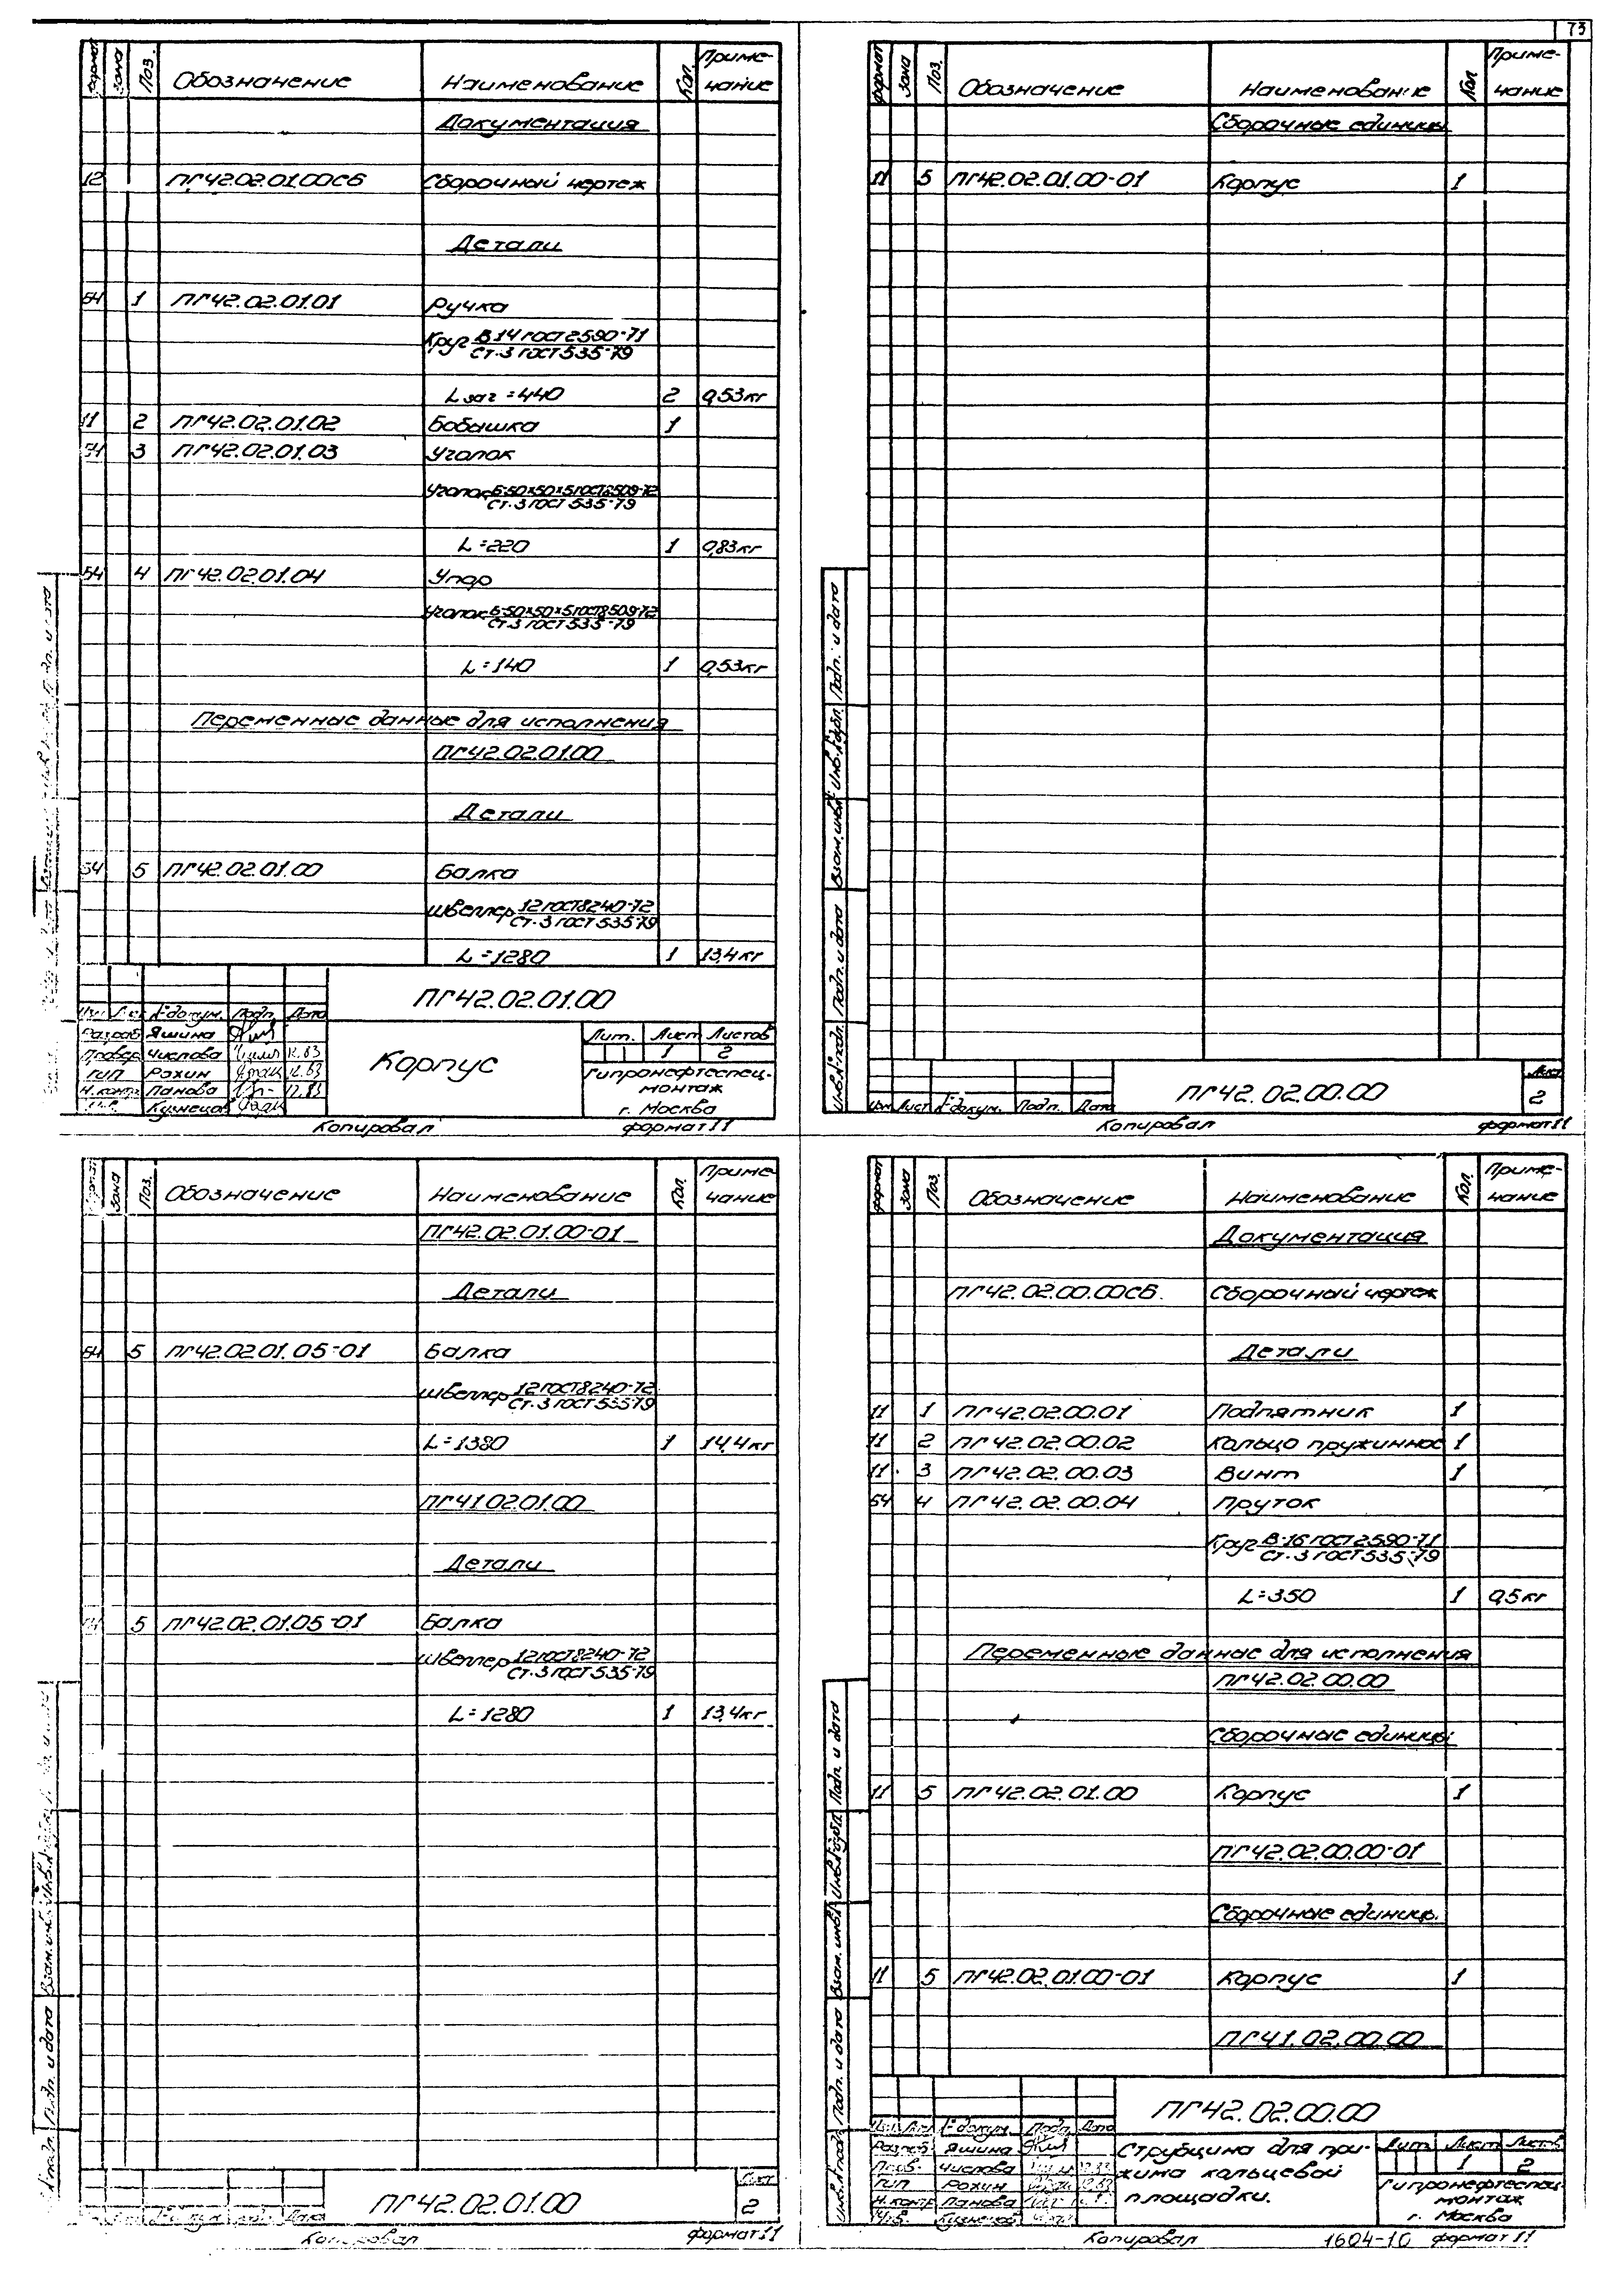 73
формат Зона Поз. Обозначение Наименование Кол. Приме-
чание
Документация
12 ПГ42.02.01.00СБ Сборочный чертеж
Детали
Б4 1 ПГ42.02.01.01 Ручка
Круг В-14 ГОСТ 2590-71
Ст.3 ГОСТ 535-79
L заг =440 2 0,53кг
11 2 ПГ42.02.01.02 Бобышка 1
Б4 3 ПГ42.02.01.03 Уголок
Уголок Б-50×50×5 ГОСТ 8509-72
Ст.3 ГОСТ 535-79
L=220 1 0,83кг
Б4 4 ПГ42.02.01.04 Упор
Уголок Б-50×50×5 ГОСТ 8509-72
Ст.3 ГОСТ 535-79
L=140 1 0,53кг
Переменные данные для исполнения
ПГ42.02.01.00
Детали
Б4 5 ПГ42.02.01.00 Балка
Швеллер 12 ГОСТ 8240-72
Ст.3 ГОСТ 535-79
L=1280 1 13,4кг
ПГ42.02.01.00
№ докум. Подп. Дата
Разраб Яшина
Провер Числова 12.83
ГИП Рохин 12.83
Н.контр Панова 12.83
Кузнецов
Корпус
Лит. Лист Листов
1 2
Гипронефтеспец-
монтаж
г. Москва
Копировал формат 11
формат Зона Поз. Обозначение Наименование Кол. Приме-
чание
Сборочные единицы
11 5 ПГ42.02.01.00-01 Корпус 1
Инв.№подл. Подп. и дата Взам.инв№ Инв.№дубл. Подп. и дата
Изм Лист № докум. Подп. Дата
ПГ42.02.00.00
Лист
2
Копировал формат 11
формат Зона Поз. Обозначение Наименование Кол. Приме-
чание
ПГ42.02.01.00-01
Детали
Б4 5 ПГ42.02.01.05-01 Балка
Швеллер 12 ГОСТ 8240-72
Ст.3 ГОСТ 535-79
L=1380 1 14,4кг
ПГ41.02.01.00
Детали
5 ПГ42.02.01.05-01 Балка
Швеллер 12 ГОСТ 8240-72
Ст.3 ГОСТ 535-79
L=1280 1 13,4кг
Подп. и дата Взам.инв№
ПГ42.02.01.00
Лист
2
Копировал формат 11
формат Зона Поз. Обозначение Наименование Кол. Приме-
чание
Документация
ПГ42.02.00.00СБ. Сборочный чертеж
Детали
11 1 ПГ42.02.00.01 Подпятник 1
11 2 ПГ42.02.00.02 Кольцо пружинное 1
11 3 ПГ42.02.00.03 Винт 1
Б4 4 ПГ42.02.00.04 Пруток
Круг В-16 ГОСТ 2590-71
Ст.3 ГОСТ 535-79
L=350 1 0,5кг
Переменные данные для исполнения
ПГ42.02.00.00
Сборочные единицы
11 5 ПГ42.02.01.00 Корпус 1
ПГ42.02.00.00-01
Сборочные единицы
11 5 ПГ42.02.01.00-01 Корпус 1
ПГ41.02.00.00
Инв.№подл. Подп. и дата Взам.инв№ Инв.№дубл. Подп. и дата
ПГ42.02.00.00
№ докум. Подп. Дата
Разраб Яшина
Пров. Числова
ГИП Рохин
Н.контр Панова
Утв. Кузнецов
Струбцина для при-
жима кольцевой
площадки.
Лит. Лист Листов
1 2
Гипронефтеспец-
монтаж
г. Москва
Копировал 1604-10 формат 11